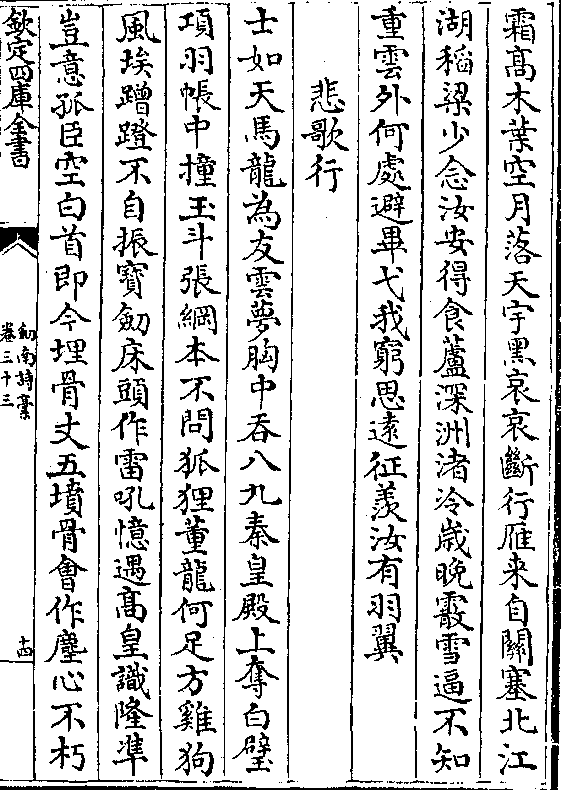 霜髙木葉空月落天宇黑哀哀斷行雁来自關塞北江
湖稻粱少念汝安得食蘆深洲渚冷歳晩霰雪逼不知
重雲外何處避畢弋我窮思遠征羨汝有羽翼
悲歌行
士如天馬龍為友雲夢胸中吞八九秦皇殿上奪白璧
項羽帳中撞玉斗張綱本不問狐狸董龍何足方雞狗
風埃蹭蹬不自振寳劒床頭作雷吼憶遇髙皇識隆凖
豈意孤臣空白首即今埋骨丈五墳骨會作塵心不朽
欽定四庫全書
劒南詩藁
卷三十三
十四